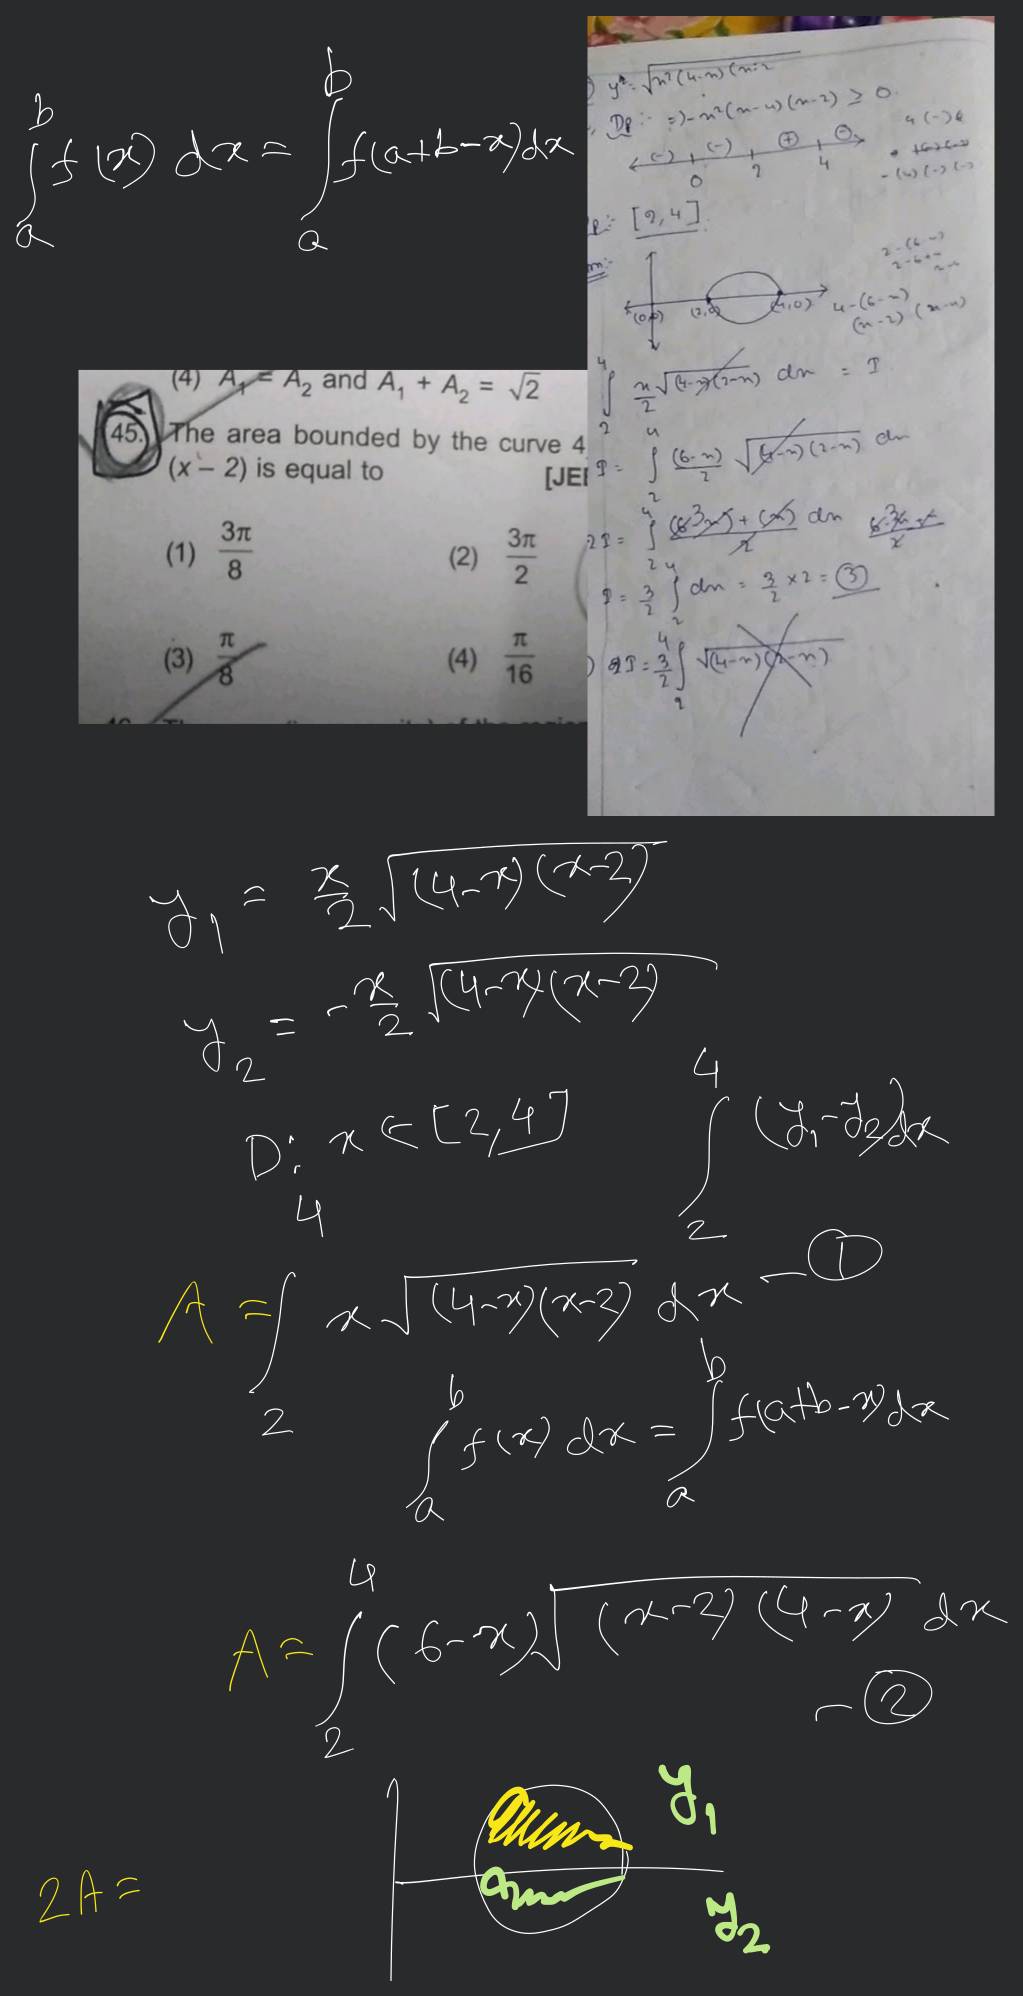 ∫_a^b f(x) dx = ∫_a^b f(a+b-x)dx
(4) A₁ = A₂ and A₁ + A₂ = √2
45. The area bounded by the curve 4
(x – 2) is equal to [JE
(1) 3π/8 (2) 3π/2
(3) π/8 (4) π/16
⇒ -x²(x-4)(x-2) ≥ 0
(-) (-) (+) (-)
0 2 4
[2,4]
(0,0) (2,0) (4,0)
4-(6-x)
(x-2)
∫_2^4 x/2 √(4-x)(2-x) dx = I
I = ∫_2^4 (6-x)/2 √(4-x)(2-x) dx
I = 3/2 ∫_2^4 dx = 3/2 × 2 = 3
2I = 3/2 ∫_2^4 √(4-x)(2-x)
y₁ = x/2 √(4-x)(x-2)
y₂ = -x/2 √(4-x)(x-2)
D: x ∈ [2,4] ∫_2^4 (y₁-y₂)dx
A = ∫_2^4 x√(4-x)(x-2) dx - ①
∫_a^b f(x) dx = ∫_a^b f(a+b-x)dx
A = ∫_2^4 (6-x)√(x-2)(4-x) dx
- ②
y₁
2A =
y₂